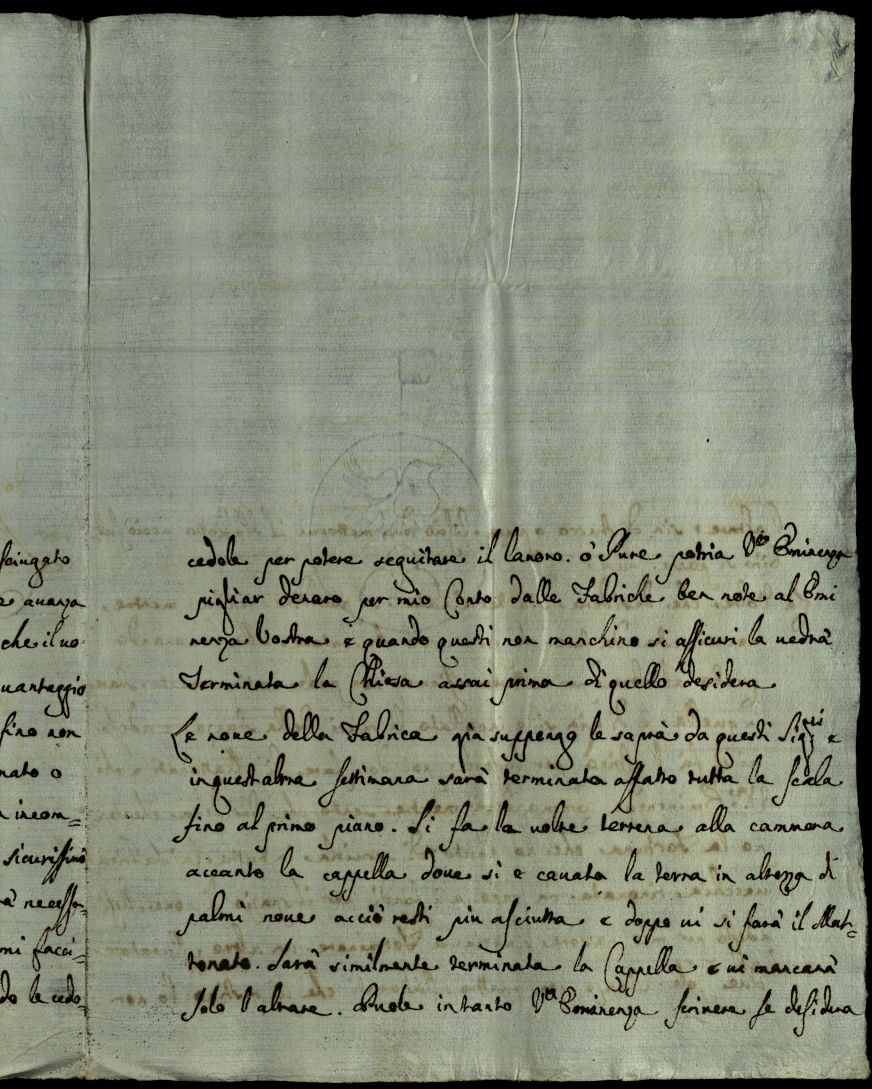 sciugato
e auanza
che il uo
uantaggio
fino non
nato o
n incom=
sicurissimo
à necessa=
mi facci=
do le cedo=
cedole per potere seguitare il lauoro. ò Pure potria V.ra Eminenza
pigliar denaro per mio Conto dalle Fabriche ben note al Emi
nenza Vostra e quando questi non manchino si assicuri la uedrà
Terminata la Chiesa assai prima di quello desidera
Le noue della Fabrica già suppongo le saprà da questi Sig.ri e
in quest altra settimana sarà terminata affatto tutta la scala
fino al primo piano. Si fa la uolta terrena alla cammera
accanto la cappella doue si e cauata la terra in altezza di
palmi noue acciò resti piu asciutta e doppo ui si farà il Mat=
tonato. Sarà similmente terminata la Cappella e ui mancarà
solo l altare. Puole in tanto V.ra Eminenza scriuere se desidera